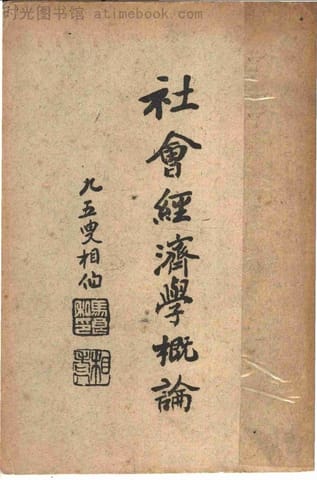 时光图书馆 atimebook.com
社會經濟學概論
九五叟相伯